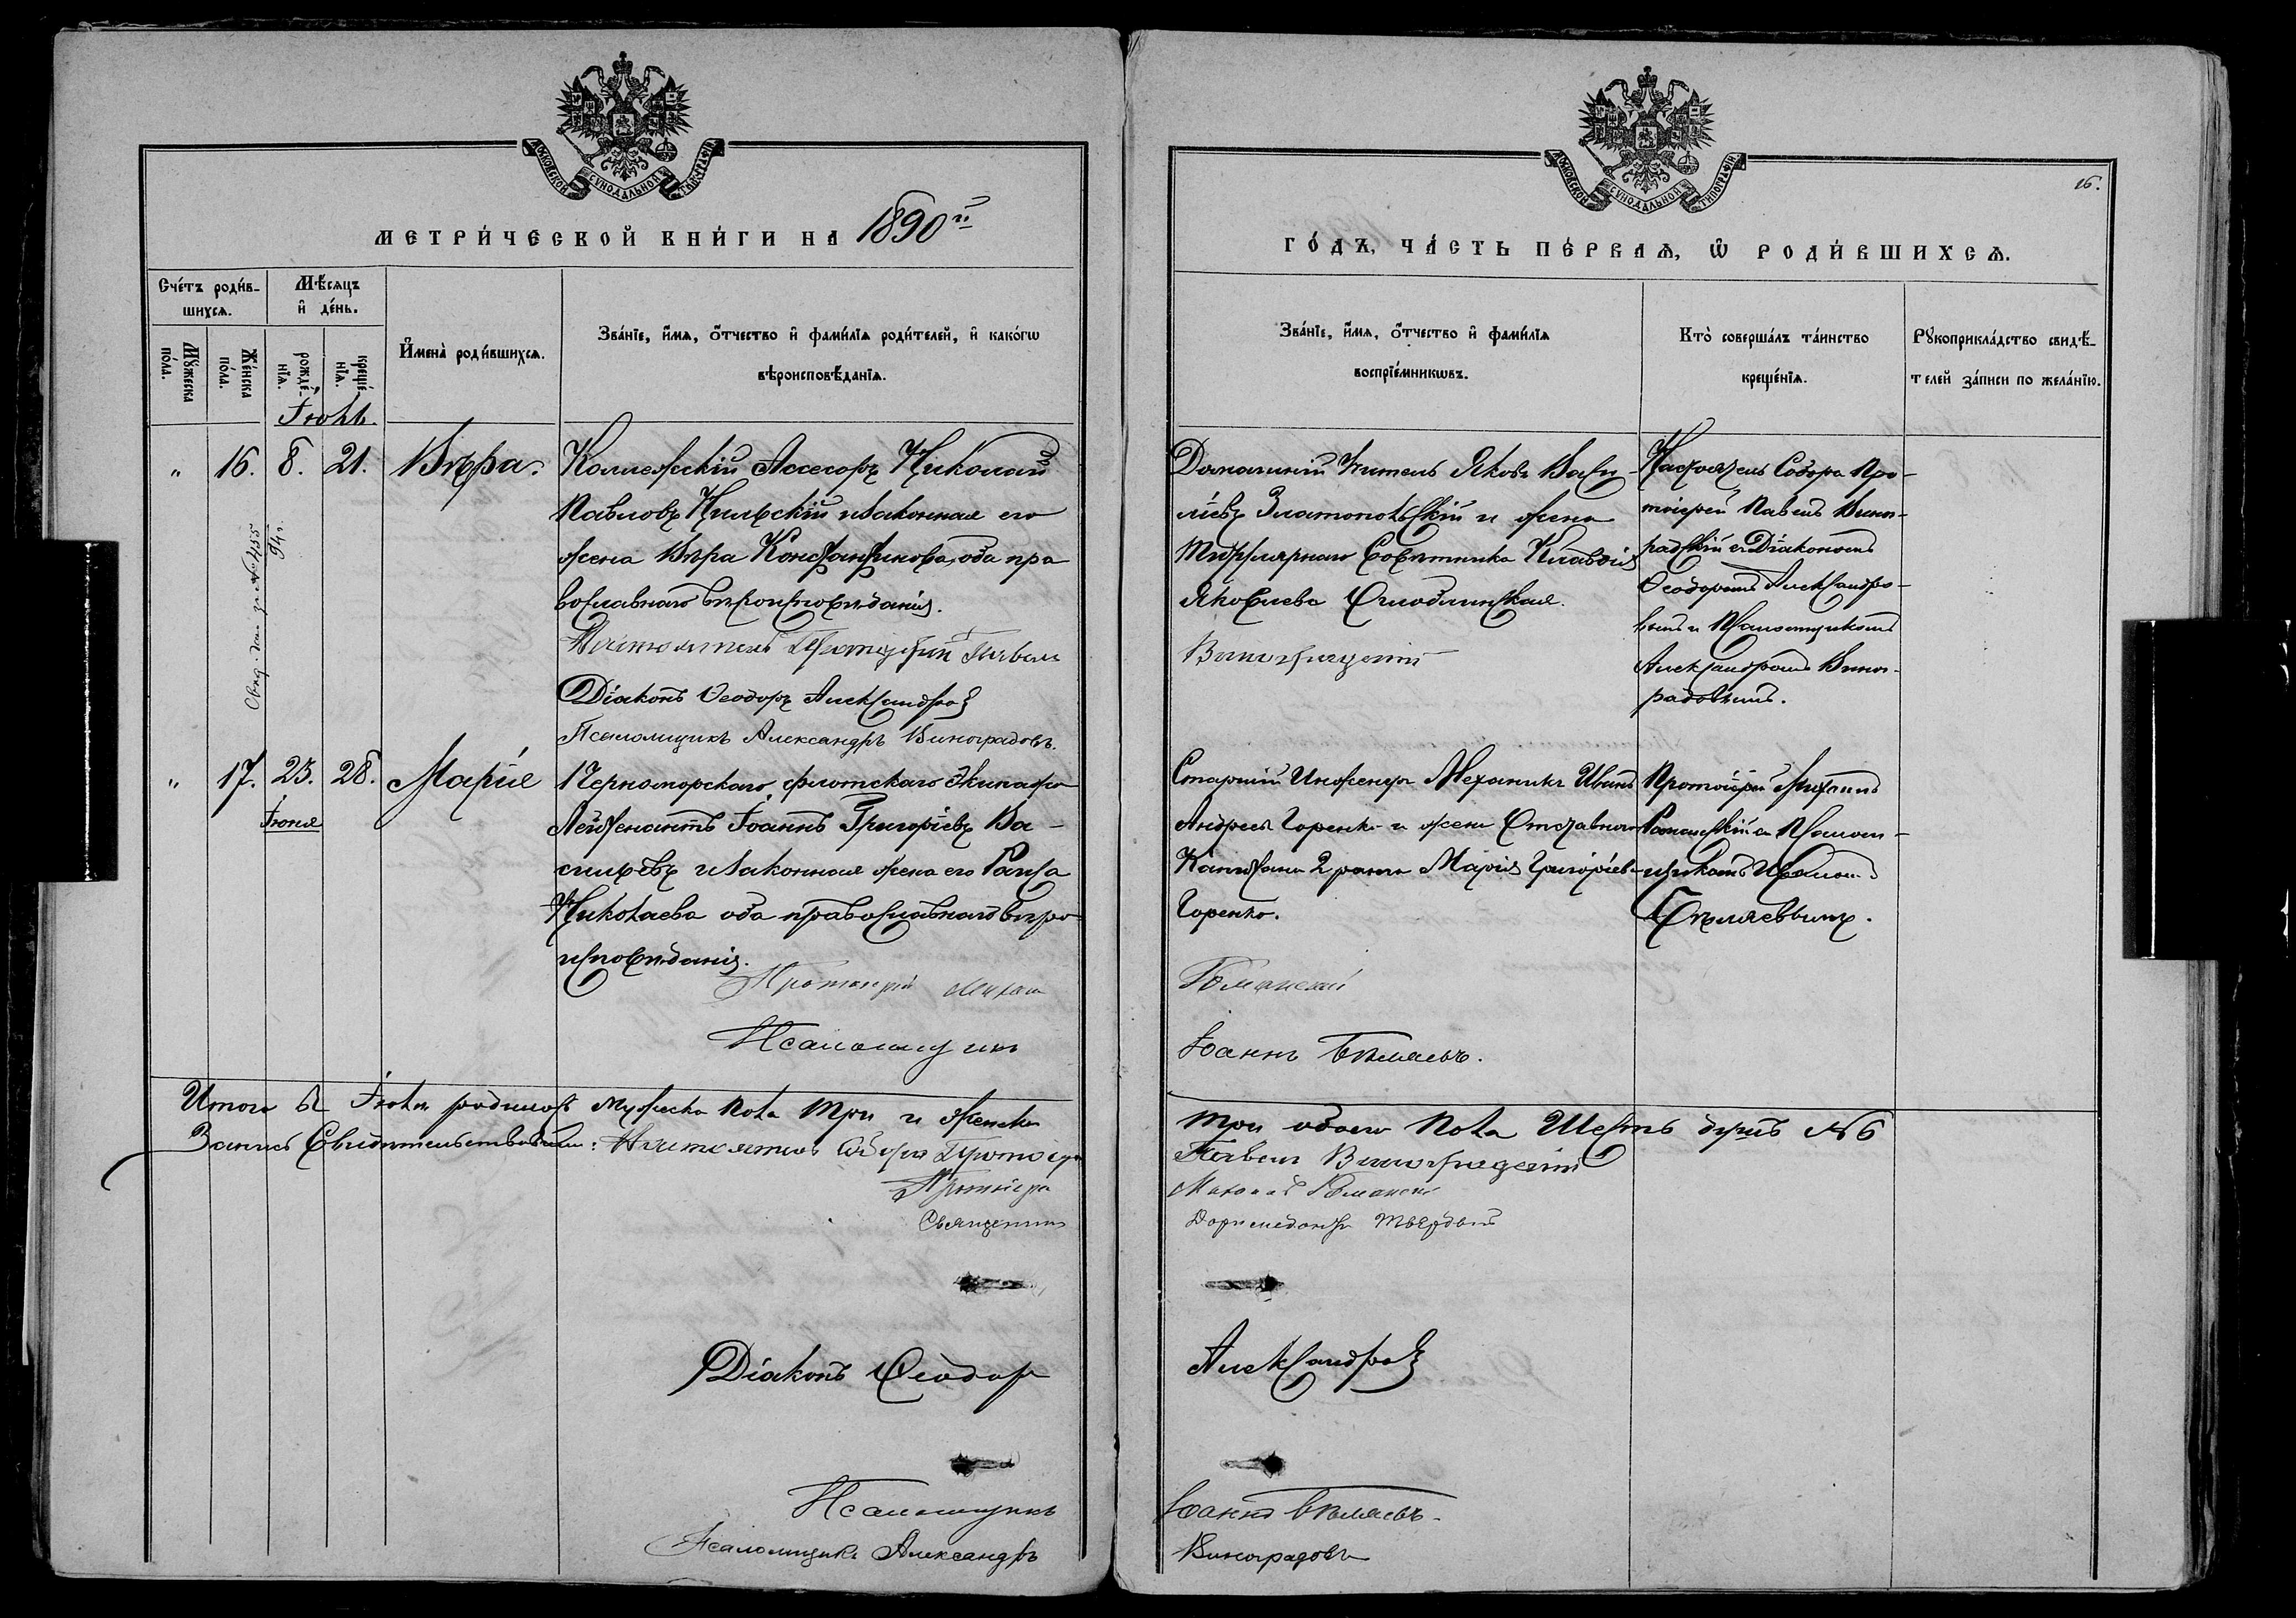 МОСКОВСКОЙ СУНОДАЛЬНОЙ ТИПОГРАФІИ
МЕТРИ́ЧЕСКОЙ КНИ́ГИ НА 1890й
Сче́тъ роди́в-
шихсѧ.
Мѣ́сѧцъ
и҆ де́нь.
Мꙋ́жеска
по́ла.
Же́нска
по́ла.
рожде́-
нїѧ.
креще́-
нїѧ.
И҆мена̀ роди́вшихсѧ.
Зва́нїе, и҆́мѧ, ѻ҆́тчество и҆ фами́лїѧ роди́телей, и҆ како́гѡ
вѣроисповѣ́данїѧ.
Іюль.
" 16. 8. 21. Вѣра.
Коллежскій Ассесоръ Николай
Павловъ Нильскій и законная его
жена Вѣра Константинова, оба пра
вославнаго вѣроисповѣданія.
Настоятель Протоіерей Павелъ
Діаконъ Ѳеодоръ Александровъ
Псаломщикъ Александръ Виноградовъ.
за № 455
94 г.
" 17. 23. 28. Марія
Іюня
1 Черноморскаго флотскаго Экипажа
Лейтенантъ Іоаннъ Григоріевъ Ва-
сильевъ и законная жена его Раиса
Николаева оба православнаго вѣро
исповѣданія.
Протоіерей Михаил
Псаломщикъ
Итого въ Іюлѣ родилось мужеска пола три и женска
Запись Свидѣтельствовали: Настоятель Собора Протоіерей
Протоіерей
Священникъ
Діаконъ Ѳеодоръ
Псаломщикъ
Псаломщикъ Александръ
МОСКОВСКОЙ СУНОДАЛЬНОЙ ТИПОГРАФІИ
16.
ГО́ДЪ, ЧА́СТЬ ПЕ́РВАѦ, Ѡ҆ РОДИ́ВШИХСѦ.
Зва́нїе, и҆́мѧ, ѻ҆́тчество и҆ фами́лїѧ
воспрїе́мникѡвъ.
Кто̀ соверша́лъ та́инство
креще́нїѧ.
Рꙋкоприкла́дство свидѣ́-
телей за́писи по жела́нїю.
Домашній Учитель Яковъ Васи-
ліевъ Златопольскій и жена
Титулярнаго Совѣтника Клавдія
Яковлева
Виноградскій
Настоятель Собора Про-
тоіерей Павелъ Виног-
радскій съ Діакономъ
Ѳеодоромъ Александро-
вымъ и Псаломщикомъ
Александромъ Виног-
радовымъ.
Старшій Инженеръ Механикъ Иванъ
Андреевъ Горенко и жена Отставнаго
Капитана 2 ранга Марія Григоріева
Горенко.
Романскій
Іоаннъ Бѣляевъ.
Протоіерей Михаилъ
Романскій съ Псалом-
щикомъ Иваномъ
Бѣляевымъ.
три обоего пола Шесть душъ № 6
Павелъ Виноградскій
Михаилъ Романскій
Доримедонтъ Твердый
Александровъ
Іоаннъ Бѣляевъ.
Виноградовъ